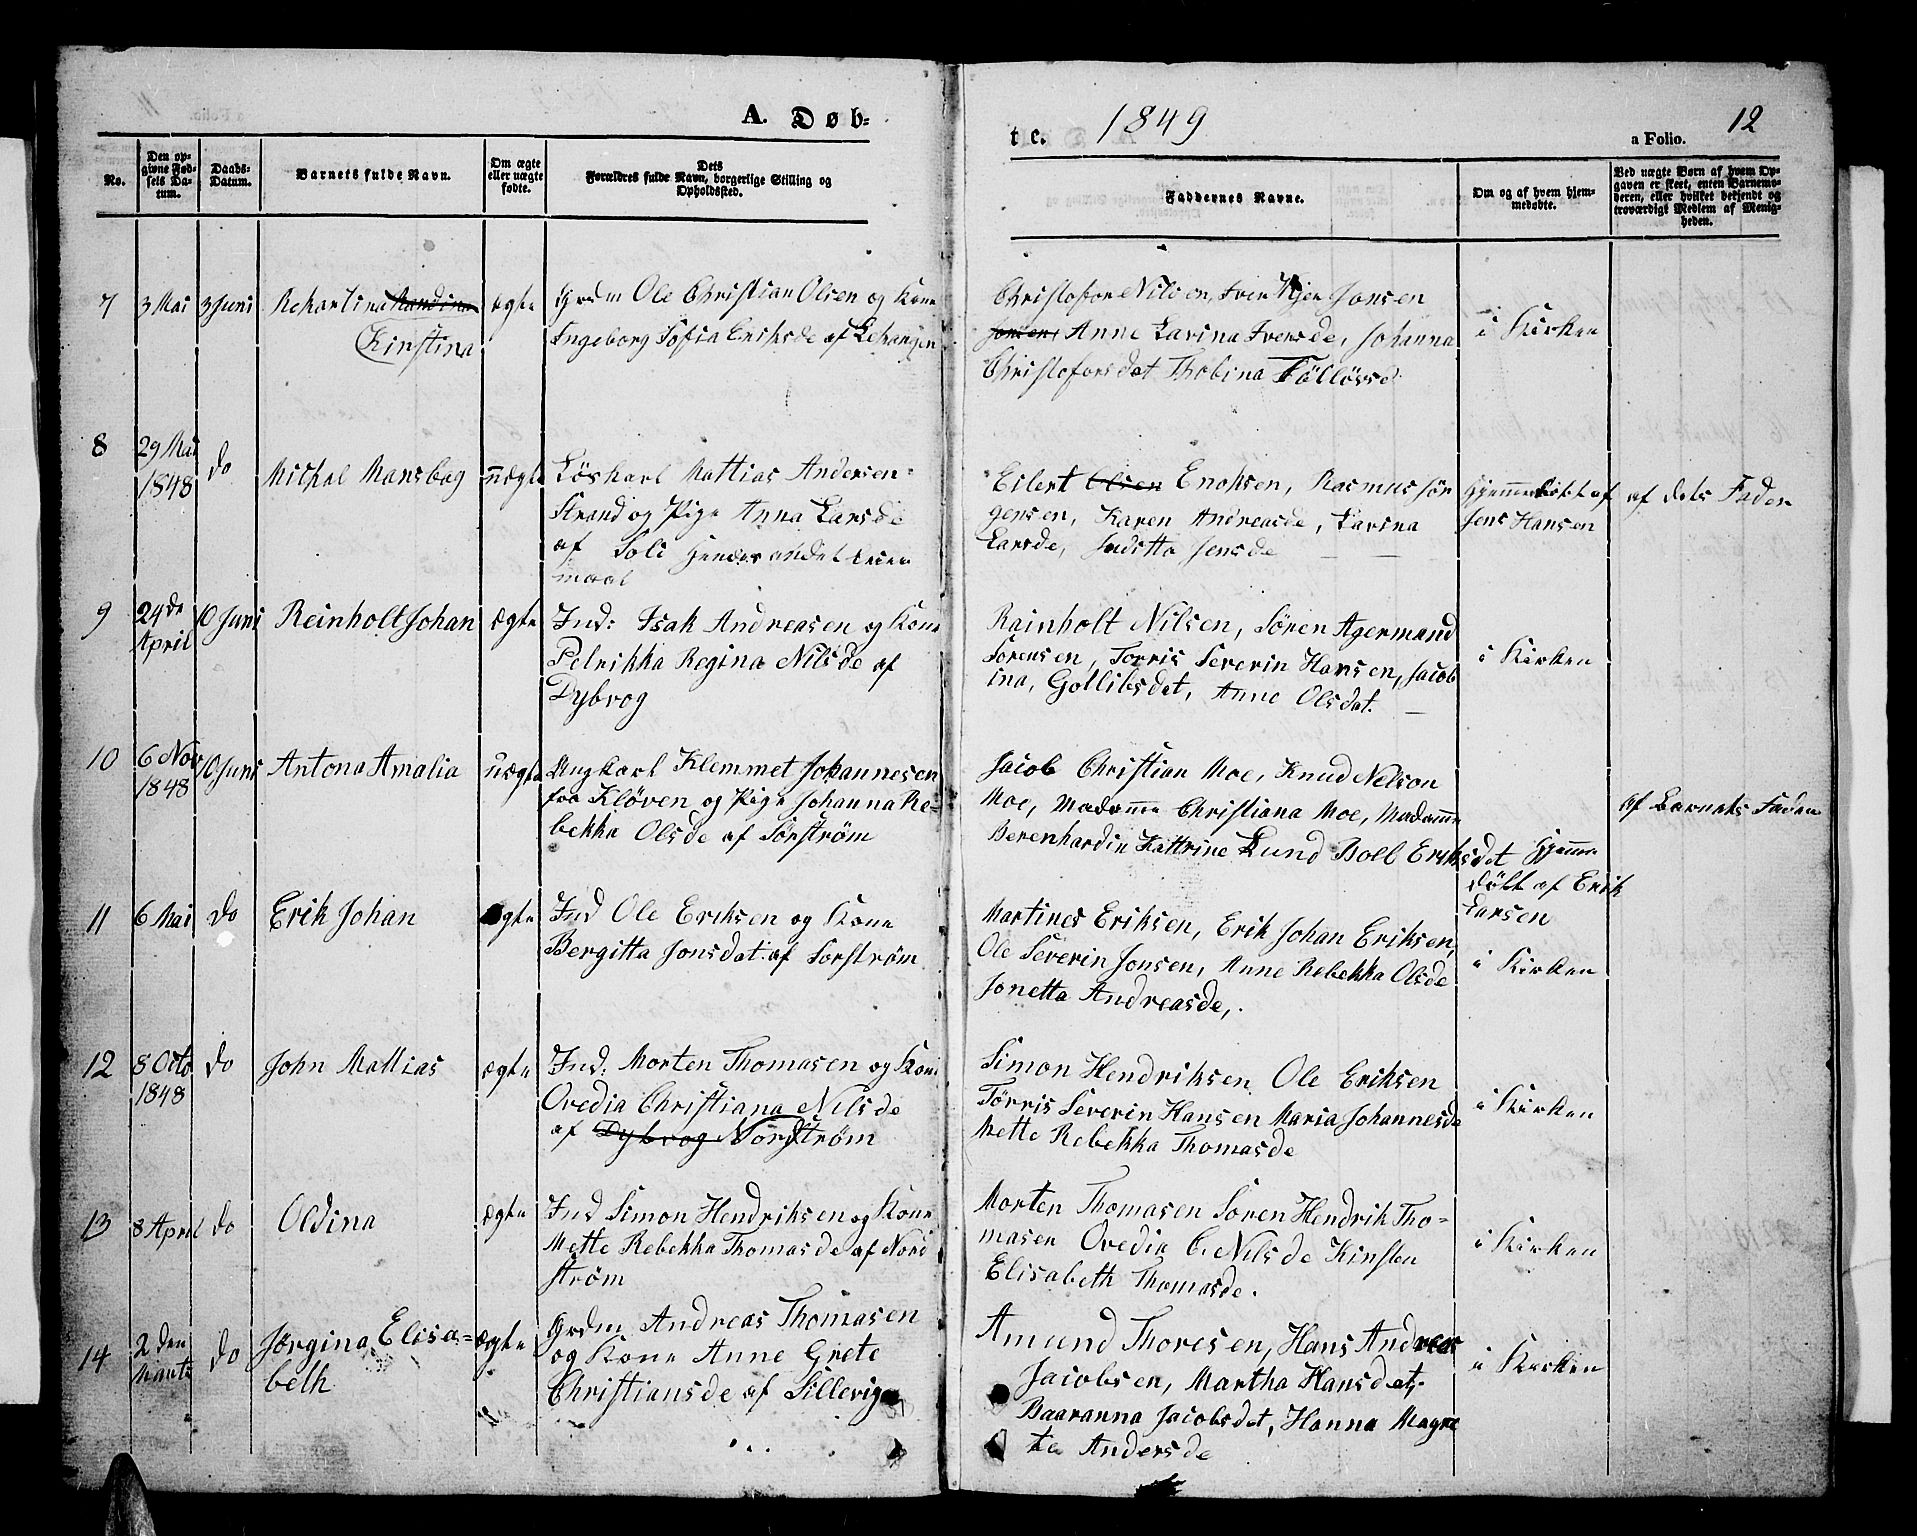 A. Døb-
te. 1849
a Folio. 12
No.
Den opgivne Fødsels Datum.
Daabs-Datum.
Barnets fulde Navn.
Om ægte eller uægte fødte.
Dets Forældres fulde Navn, borgerlige Stilling og Opholdssted.
Faddernes Navne.
Om og af hvem hjemmedøbte.
Ved uægte Børn af hvem Opgaven er skeet, enten Barnemoderen, eller hvilket bekjendt og troværdigt Medlem af Menigheden.
7 3 Mai 3 Juni Rekartina Nandina ægte Grdm Ole Christian Olsen og Kone
Kirstina Ingeborg Sofia Eriksde af
Christofor Nilsen, Iver Kjer Jonsen
Jonsen, Anne Larina Iversde, Johanna i Kirken
Christoforsdat Thobina
8 29 Mai 1848 do Michal Mansbag uægte Løskarl Mattias Andersen
Strand og Pige Anna Larsde
af Soli Hendes andet Leier
maal
Eilert Olsen Enoksen, Rasmus Jør
gensen, Karen Andreasde, Larina
Larsde, Juditta Jensde
Hjemmedøbt af
Jens Hansen
af dets Fader
9 24de April 10 Juni Reinholt Johan ægte Ind: Isak Andreasen og Kone
Petrikka Regina Nilsde af
Dybvog
Rainholt Nilsen, Søren Agermand
Sorensen, Torris Severin Hansen, Jacob
ina, Gotlibsdet, Anne Olsdat.
i Kirken
10 6 Nov 1848 10 Juni Antona Amalia uægte Ungkarl Klemmet Johannesen
fra Kløven og Pige Johanna Re-
bekka Olsde af Sørstrøm
Jacob Christian Moe, Knud Nelson
Moe, Madamme Christiana Moe, Madamme
Berenhardin Kattrine Lund Boel Eriksdet
Hjemme
døbt af Erik
Larsen
af Barnets Fader
11 6 Mai do Erik Johan ægte Ind Ole Eriksen og Kone
Bergitta Jonsdat. af Sorstrøm
Martines Eriksen, Erik Johan Eriksen,
Ole Severin Jonsen, Anne Rebekka Olsde
Jonetta Andreasde,.
i Kirken
12 8 Octo 1848 do John Mattias ægte Ind: Morten Thomasen og Kone
Ovedia Christiana Nilsde
af Dybvog Nordstrøm
Simon Hendriksen Ole Eriksen
Tørris Severin Hansen Maria Johannesde
Mette Rebekka Thomasde
i Kirken
13 8 April do Oldina ægte Ind Simon Hendriksen og Kone
Mette Rebekka Thomasde af Nord
strøm
Morten Thomasen Soren Hendrik Tho=
masen Ovedia C. Nilsde Kirsten
Elisabeth Thomasde.
i Kirken
14 2den Marts do Jørgina Elisa=
beth ægte Grdm Andreas Thomasen
og Kone Anne Grete
Christiansde af
Amund Thoresen, Hans Andreas
Jacobsen, Martha Hansdet,
Baaranna Jacobsdet, Hanna Magre
te Andersde
i Kirken